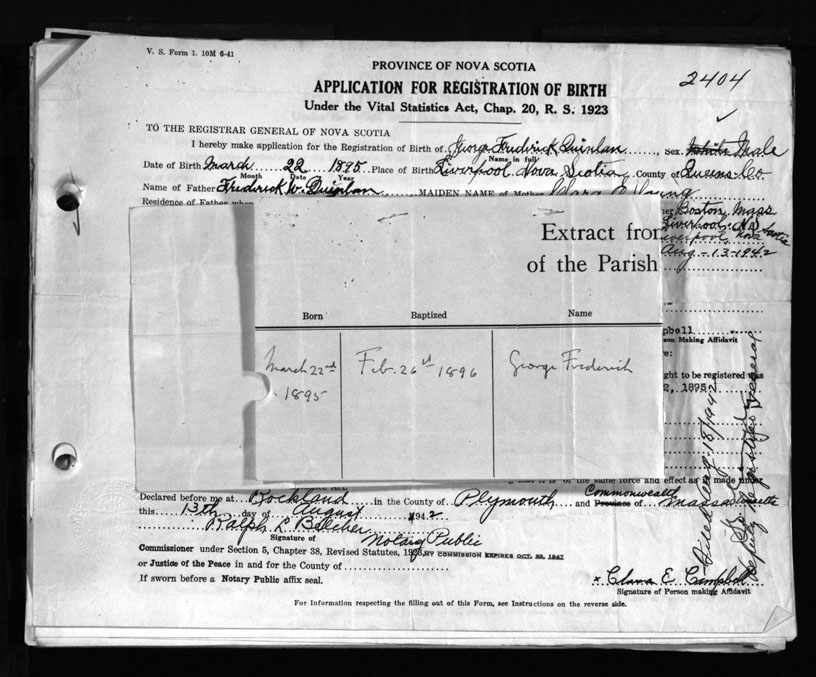 V. S. Form 1. 10M 6-41
PROVINCE OF NOVA SCOTIA
2404
APPLICATION FOR REGISTRATION OF BIRTH
Under the Vital Statistics Act, Chap. 20, R. S. 1923
TO THE REGISTRAR GENERAL OF NOVA SCOTIA
I hereby make application for the Registration of Birth of George Frederick Quinlan, Sex White Male
Name in full
Date of Birth March 22 1895 Place of Birth Liverpool Nova Scotia County of Queens Co
Month Date Year
Name of Father Frederick W. Quinlan MAIDEN NAME of Mother Clara E Young
Residence of Father when
Boston Mass
Liverpool N.S
Liverpool Nova Scotia
Aug-13-1942
Extract from
of the Parish
Born Baptized Name
March 22nd 1895 Feb. 26st 1896 George Frederick
pbell
son Making Affidavit
re:
ght to be registered was
2, 1895
of the same force and effect as if made under
Declared before me at Rockland in the County of Plymouth and Province of Commonwealth Massachusetts
this 13th day of August 1942
Ralph L Belcher
Signature of Notary Public
Commissioner under Section 5, Chapter 38, Revised Statutes, 1923, MY COMMISSION EXPIRES OCT.
or Justice of the Peace in and for the County of
If sworn before a Notary Public affix seal.
x Clara E. Campbell
Signature of Person making Affidavit
For Information respecting the filling out of this Form, see Instructions on the reverse side.
Filed Aug 18/1942
Deputy Registrar General